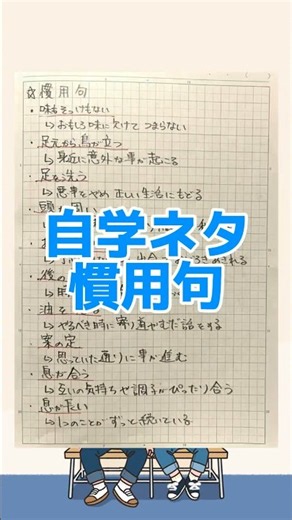 ☆慣用句
・味もそっけもない
↳おもしろ味に欠けてつまらない
・足元から鳥が立つ
↳身近に意外な事が起こる
・足を洗う
↳悪事をやめ正しい生活にもどる
自学ネタ
慣用句
油を
↳やるべき時に寄り道やむだ話をする
・案の定
↳思っていた通りに事が進む
・息が合う
↳互いの気持ちや調子がぴったり合う
・息が長い
↳1つのことがずっと続いている